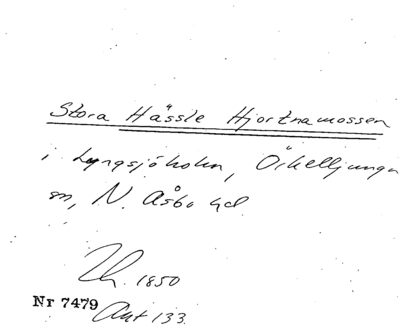 Stora Hässle Hjortnamossen
i Lyngsjöholm, Örkelljunga
sn, N. Åsbo hd.
Th. 1850
Nr 7479 Akt 133